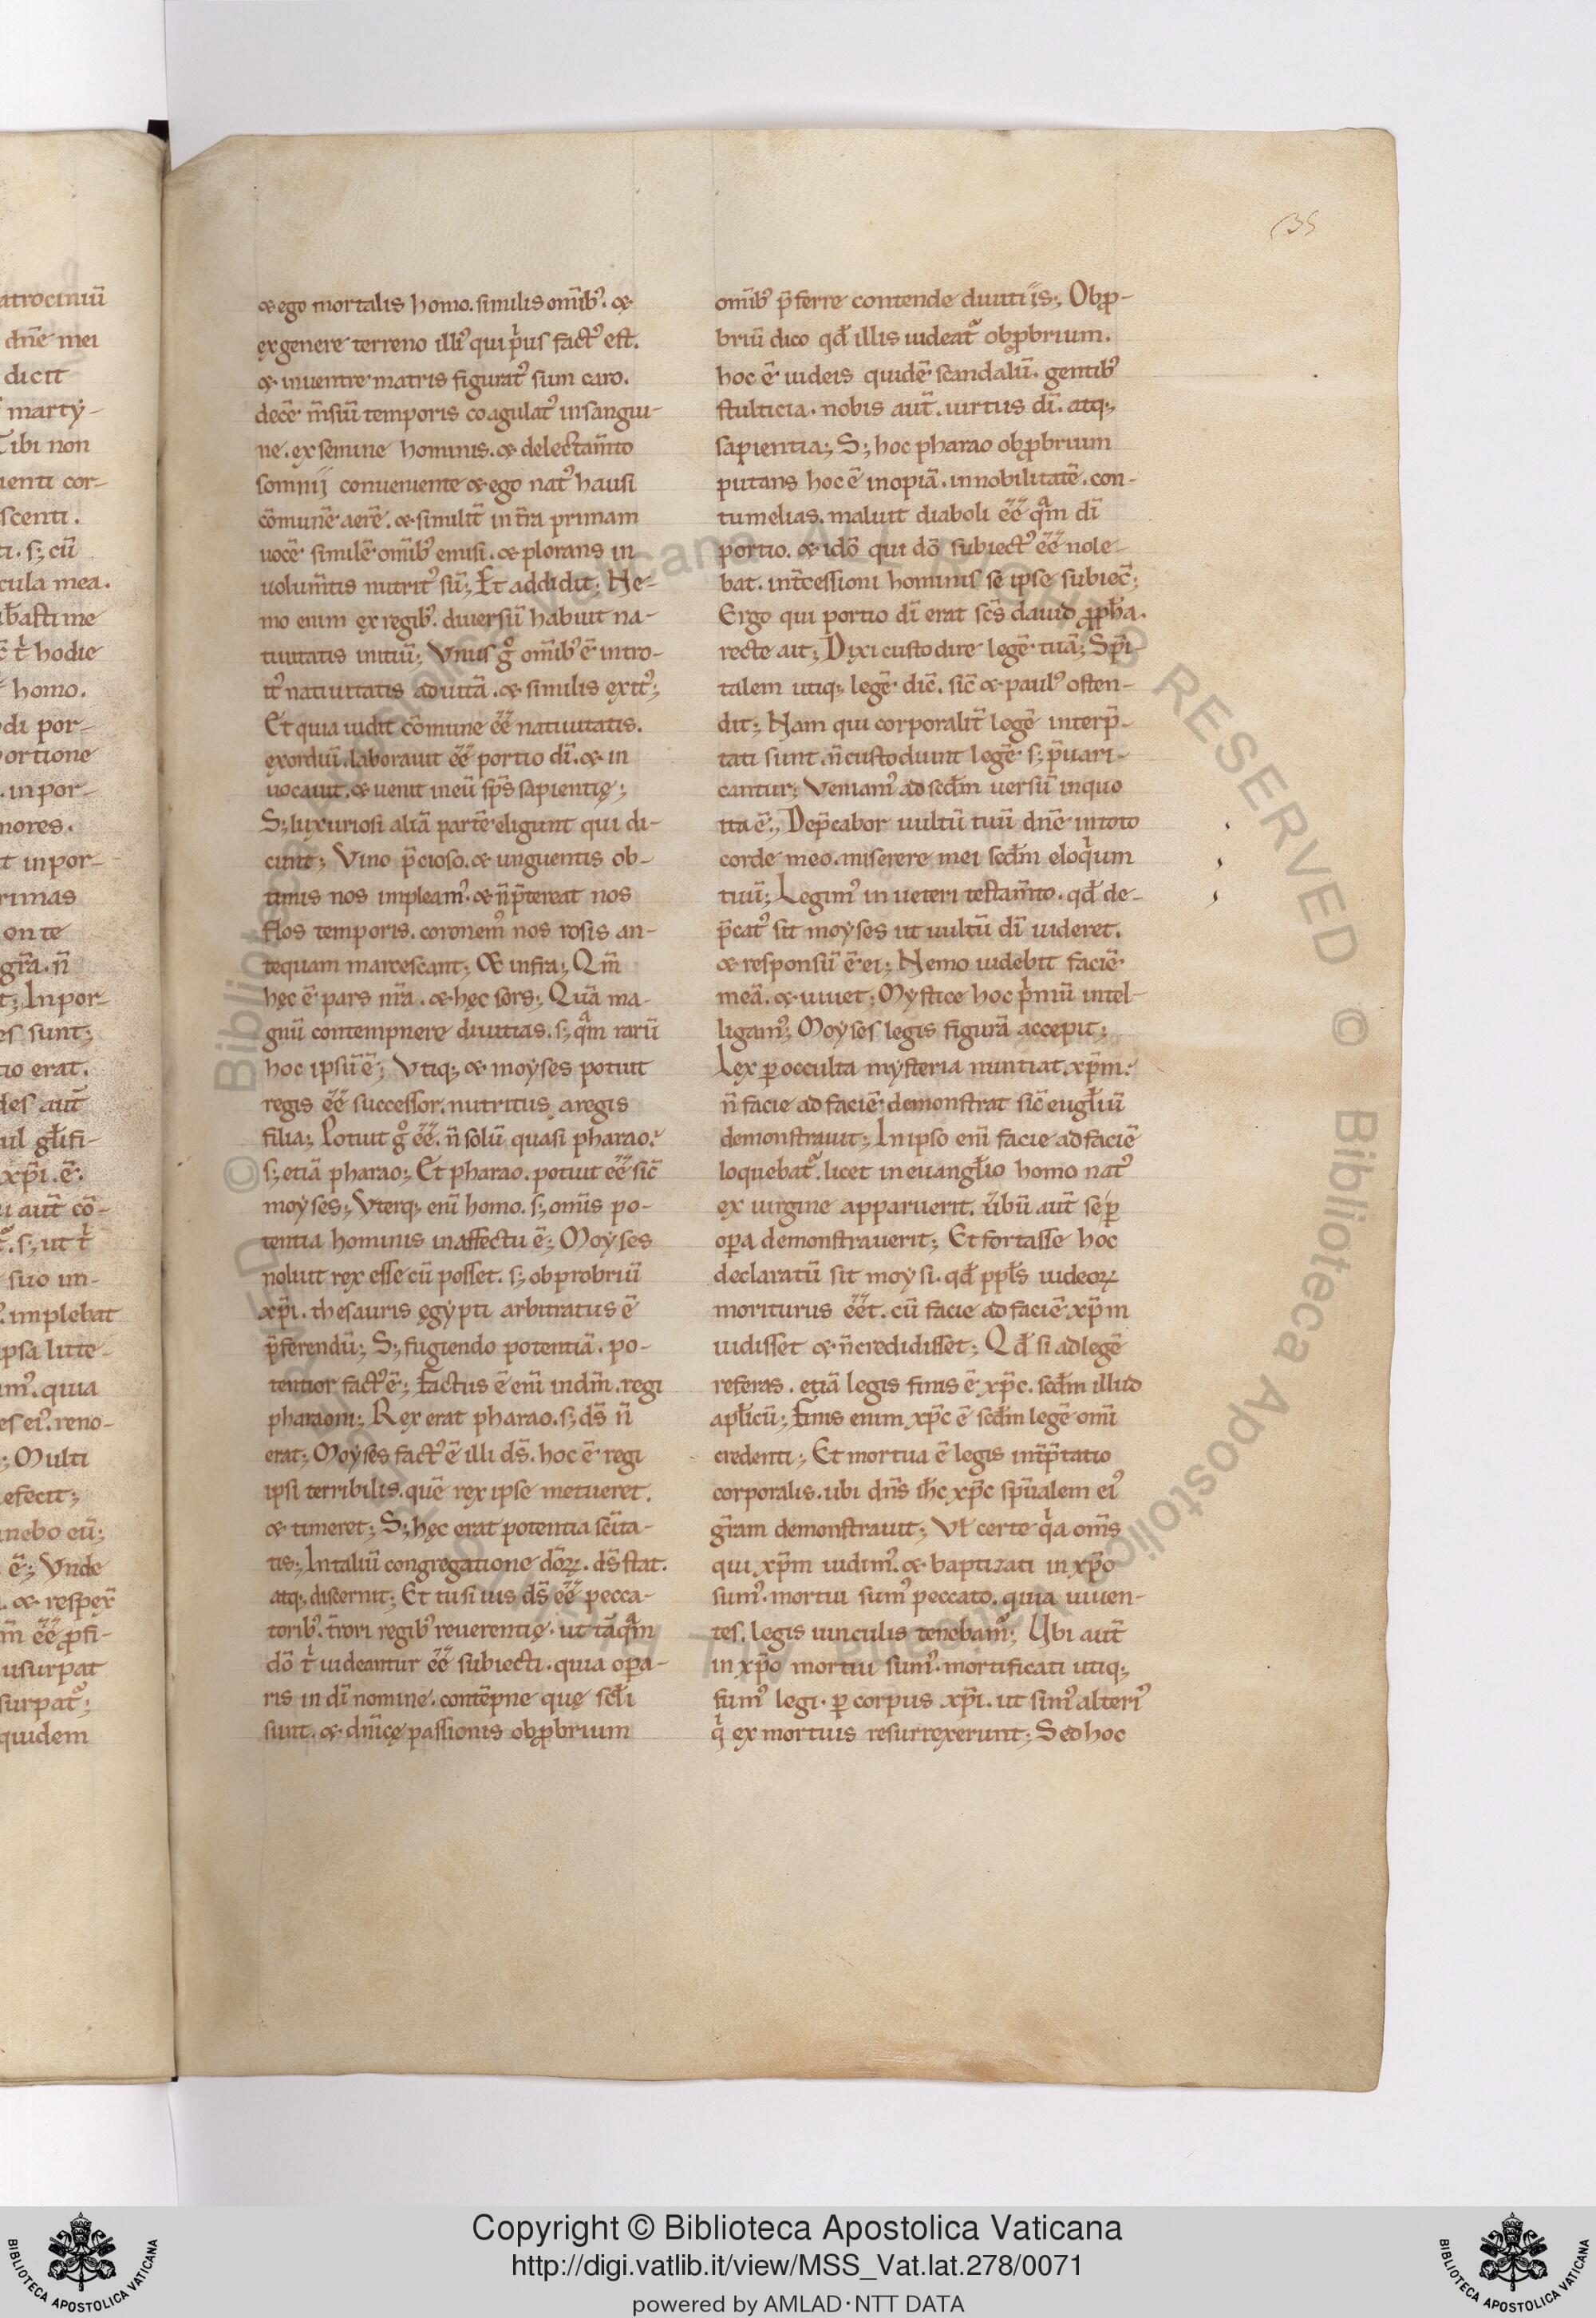 atrociniū
dnẽ mei
dicit
marty-
Tibi non
ienti cor-
scenti.
ti. s; cū
cula mea.
hodie
homo.
di por-
ortione
in por-
mores.
t in por-
rimas
on te
gr̃a. ñ
t; In por-
es sunt;
tio erat.
des aut̃
ul gl̃ifi-
xp̃i. ẽ.
aut̃ cõ-
s; ut
suo im-
implebat
psa litte-
quia
reno-
; Multi
efecit;
nebo eū;
ẽ; Vnde
profi-
usurpat
surpat᷑;
quidem
135
& ego mortalis homo. similis omĩbꝰ. &
ex genere terreno illiꝰ qui pͥus factꝰ est.
& in uentre matris figuratꝰ sum caro.
decẽ m̃siũ temporis coagulatꝰ in sangui-
ne. ex semine hominis. & delectam̃to
somnij conueniente & ego natꝰ hausi
cõmunẽ aerẽ. & similit̃ in t̃ra primam
uocẽ similẽ omĩbꝰ emisi. & plorans in
uolum̃tis nutritꝰ sũ; Et addidit; Ne-
mo enim ex regibꝰ. diuersiũ habuit na-
tiuitatis initiũ; Vnus gͦ omĩbꝰ ẽ intro-
itꝰ natiuitatis ad uitã. & similis exitꝰ;
Et quia uidit cõmune ẽẽ natiuitatis.
exordiũ. laborauit ẽẽ portio dĩ. & in
uocauit. & uenit in eũ sp̃s sapientię;
S; luxuriosi aliã partẽ eligunt qui di-
cunt; Vino p̃cioso. & unguentis ob-
timis nos impleamꝰ. & ñ p̃tereat nos
flos temporis. coronemꝰ nos rosis an-
tequam marcescant; & infra; Qm̃
hęc ẽ pars nr̃a. & hęc sors; Quã ma-
gnũ contempnere diuitias. s; qᵃ̃m rarũ
hoc ipsũ ẽ; Vtiq; & moyses potuit
regis ẽẽ successor. nutritus a regis
filia; Potuit gͦ ẽẽ. ñ solũ quasi pharao.
s; etiã pharao; Et pharao. potuit ẽẽ sic̃
moyses; Vterq; enĩ homo. s; om̃is po-
tentia hominis in affectu ẽ; Moyses
noluit rex esse cũ posset. s; obprobriũ
xp̃i. thesauris ęgypti arbitratus ẽ
p̃ferendũ; S; fugiendo potentiã. po-
tentior factꝰ ẽ; Factus ẽ enĩ in dm̃. regi
pharaoni; Rex erat pharao. s; ds̃ ñ
erat; Moyses factꝰ ẽ illi ds̃. hoc ẽ regi
ipsi terribilis. quẽ rex ipse metueret.
& timeret; S; hęc erat potentia sc̃ita-
tis; In taliũ congregatione dõꝝ. ds̃ stat.
atq; discernit; Et tu si uis ds̃ ẽẽ pecca-
toribꝰ. t̃rori regibꝰ reuerentię. ut tãqᵃ̃m
dõ tͥ uideantur ẽẽ subiecti. quia oꝑa-
ris in dĩ nomine. contẽpne quę scl̃i
sunt. & dñicę passionis obꝓbrium
omĩbꝰ p̃ferre contende diuitiis; Obꝓ-
briũ dico qđ illis uideat᷑ obꝓbrium.
hoc ẽ iudeis quidẽ scandalũ. gentibꝰ
stulticia. nobis aut̃. uirtus dĩ. atq;
sapientia; S; hoc pharao obꝓbrium
putans hoc ẽ inopiã. innobilitatẽ. con-
tumelias. maluit diaboli ẽẽ qᵃ̃m dĩ
portio. & idõ qui dõ subiectꝰ ẽẽ nole-
bat. int̃cessioni hominis se ipse subiec̃;
Ergo qui portio dĩ erat sc̃s dauid ꝓph̃a.
recte ait; Dixi custodire legẽ tuã; Sp̃i-
talem utiq; legẽ dic̃. sic̃ & paulꝰ osten-
dit; Nam qui corporalit̃ legẽ interp̃-
tati sunt. ñ custodiunt legẽ s; p̃uari-
cantur; Veniamꝰ ad scd̃m uersũ in quo
ita ẽ; Dep̃cabor uultũ tuũ dnẽ in toto
corde meo. miserere mei scd̃m eloqͥum
tuũ; Legimꝰ in ueteri testam̃to. qđ de-
p̃catꝰ sit moyses ut uultũ dĩ uideret.
& responsũ ẽ ei; Nemo uidebit faciẽ
meã. & uiuet; Mystice hoc pͥmũ intel-
ligamꝰ; Moyses legis figurã accepit;
Lex ꝑ occulta mysteria nuntiat xp̃m.
ñ facie ad faciẽ demonstrat sic̃ eugl̃iũ
demonstrauit; In ipso enĩ facie ad faciẽ
loquebat᷑. licet in euangl̃io homo natꝰ
ex uirgine apparuerit. ũbũ aut̃ seꝑ
oꝑa demonstrauerit; Et fortasse hoc
declaratũ sit moysi. qđ ppl̃s iudeoꝝ
moriturus ẽẽt. cũ facie ad faciẽ xp̃m
uidisset & ñ credidisset; Qđ si ad legẽ
referas. etiã legis finis ẽ xp̃c. scd̃m illud
apl̃icũ; Finis enim xp̃c ẽ scd̃m legẽ omĩ
credenti; Et mortua ẽ legis int̃p̃tatio
corporalis. ubi dñs ih̃c xp̃c sp̃ualem eiꝰ
gr̃am demonstrauit; Vł certe qᵃ om̃s
qui xp̃m uidimꝰ. & baptizati in xp̃o
sumꝰ. mortui sumꝰ peccato. quia uiuen-
tes. legis uinculis tenebam᷑; Ubi aut̃
in xp̃o mortui sumꝰ. mortificati utiq;
sumꝰ legi. ꝑ corpus xp̃i. ut simꝰ alteriꝰ
qͥ ex mortuis resurrexerunt; Sed hoc
Copyright © Biblioteca Apostolica Vaticana
http://digi.vatlib.it/view/MSS_Vat.lat.278/0071
powered by AMLAD·NTT DATA
BIBLIOTECA APOSTOLICA VATICANA
BIBLIOTECA APOSTOLICA VATICANA